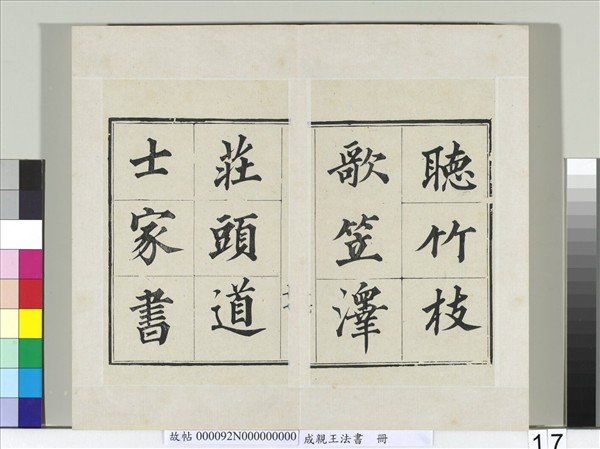 聽竹枝
歌笠澤
莊頭道
士家書
故帖 000092N000000000 成親王法書 冊
17